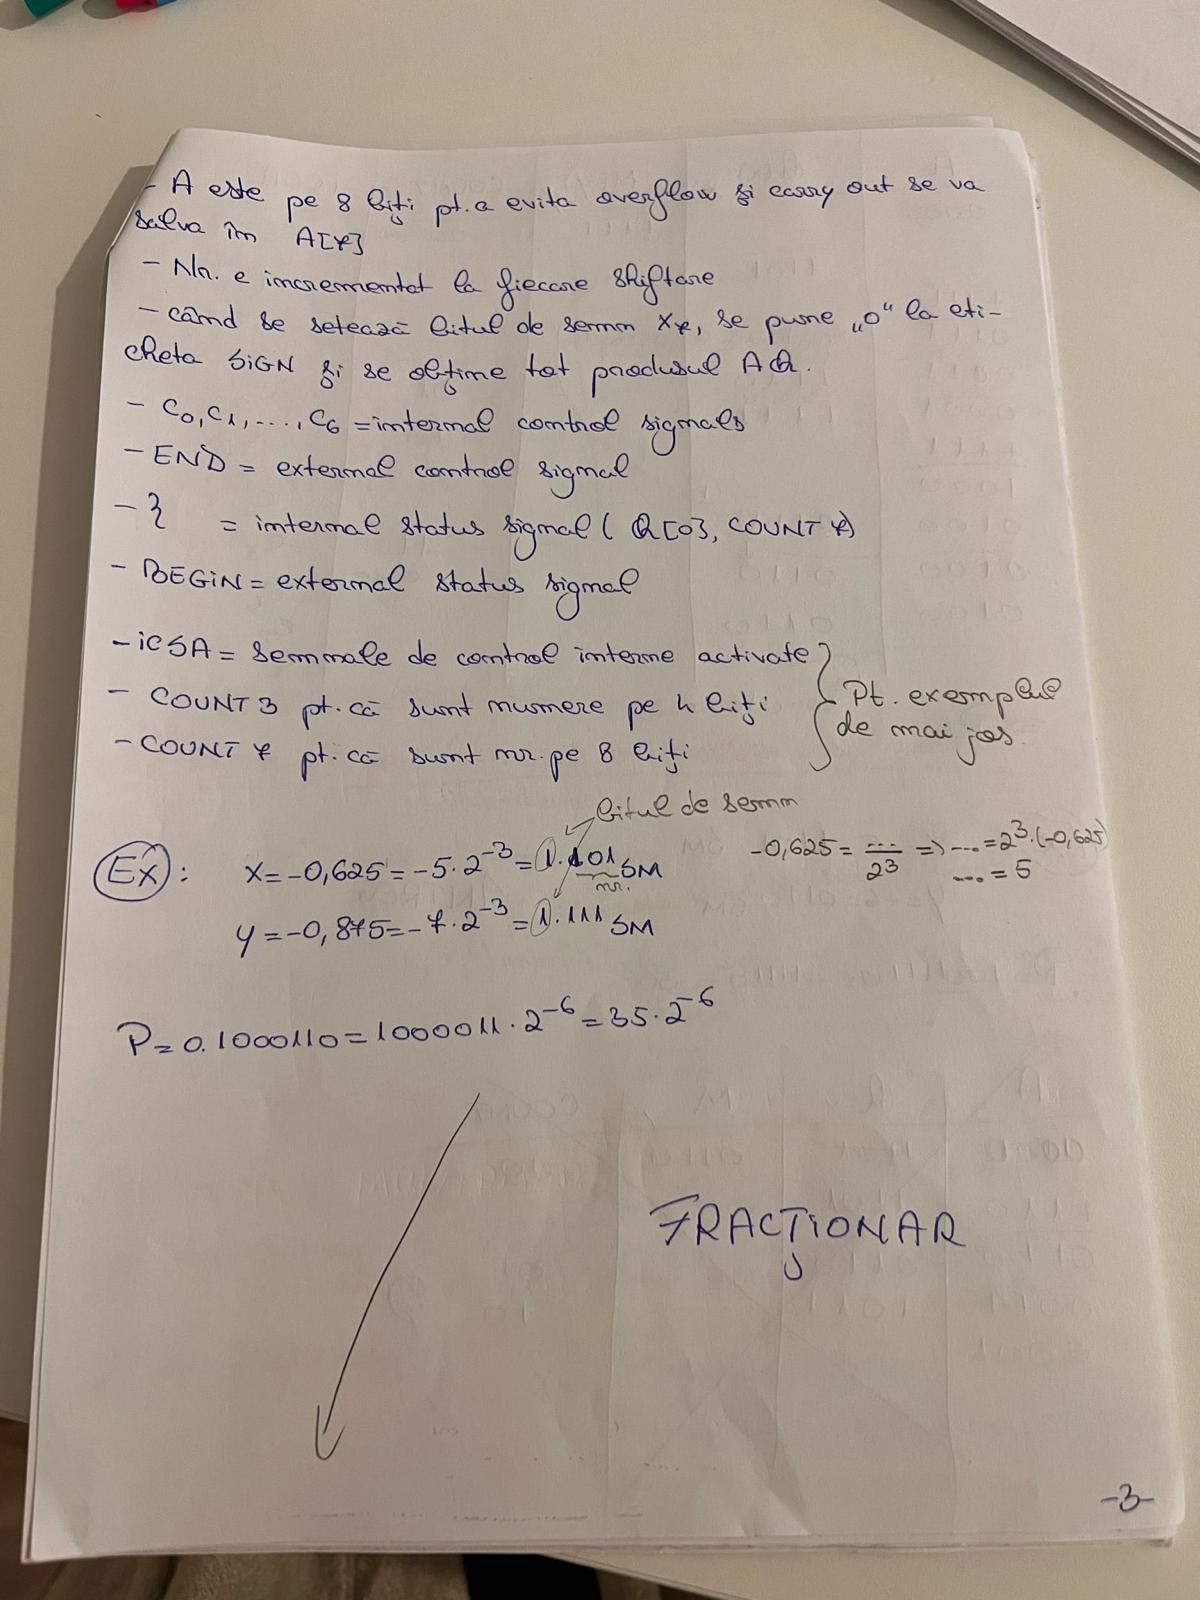 - A este pe 8 biți pt. a evita overflow și carry out se va
salva în A[7]
- Nr. e incrementat la fiecare shiftare
- când se setează bitul de semn X7, se pune „0" la eti-
cheta SIGN și se obține tot produsul AQ.
- C0, C1, ..., C6 = internal control signals
- END = external control signal
- } = internal status signal ( Q[0], COUNT 7)
- BEGIN = external status signal
- ICSA = semnale de control interne activate
- COUNT 3 pt. că sunt numere pe 4 biți
- COUNT 7 pt. că sunt nr. pe 8 biți
} Pt. exemplul
de mai jos.
bitul de semn
EX: X = -0,625 = -5·2^-3 = 1.101 SM
nr.
-0,625 = .../2^3 => ... = 2^3·(-0,625)
... = 5
Y = -0,875 = -7·2^-3 = 1.111 SM
P = 0.1000110 = 1000011·2^-6 = 35·2^-6
FRACȚIONAR
-3-